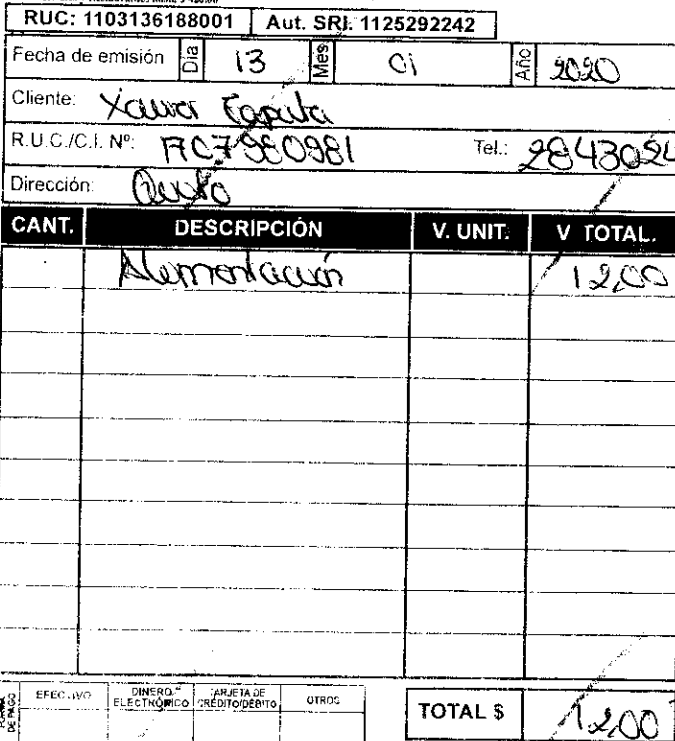 RUC: 1103136188001 Aut. SRI: 1125292242
Fecha de emisión Día 13 Mes 01 Año 2020
Cliente: Xavier Zapata
R.U.C./C.I. Nº: 1707980981 Tel.: 2843024
Dirección: Quito
CANT. DESCRIPCIÓN V. UNIT. V TOTAL.
Alimentación 12,00
FORMA DE PAGO EFECTIVO DINERO ELECTRÓNICO TARJETA DE CRÉDITO/DÉBITO OTROS
TOTAL $ 12,00